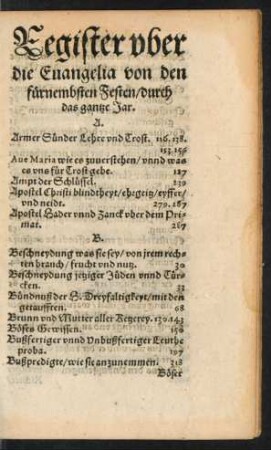 Register vber
die Euangelia von den
fürnembsten Festen/durch
das gantze Jar.
A.
Armer Sünder Lehre vnd Trost. 116.138.
153.156
Aue Maria wie es zuuerstehen/vnnd was
es vns für Trost gebe. 127
Ampt der Schlüssel. 239
Apostel Christi blindtheyt/ehrgeitz/eyffer/
vnd neidt. 270.287
Apostel Hader vnnd Zanck vber dem Pri-
mat. 287
B.
Beschneydung was sie sey/von jrem rech-
ten brauch/frucht vnd nutz. 30
Beschneydung jetziger Jüden vnnd Tür-
cken. 31
Bündnuß der H. Dreyfaltigkeyt/mit den
getaufften. 68
Brunn vnd Mutter aller Ketzerey. 130.143
Böses Gewissen. 156
Bußfertiger vnnd Vnbußfertiger Leuthe
proba. 197
Bußpredigte/wie sie anzunemmen. 218
Böser